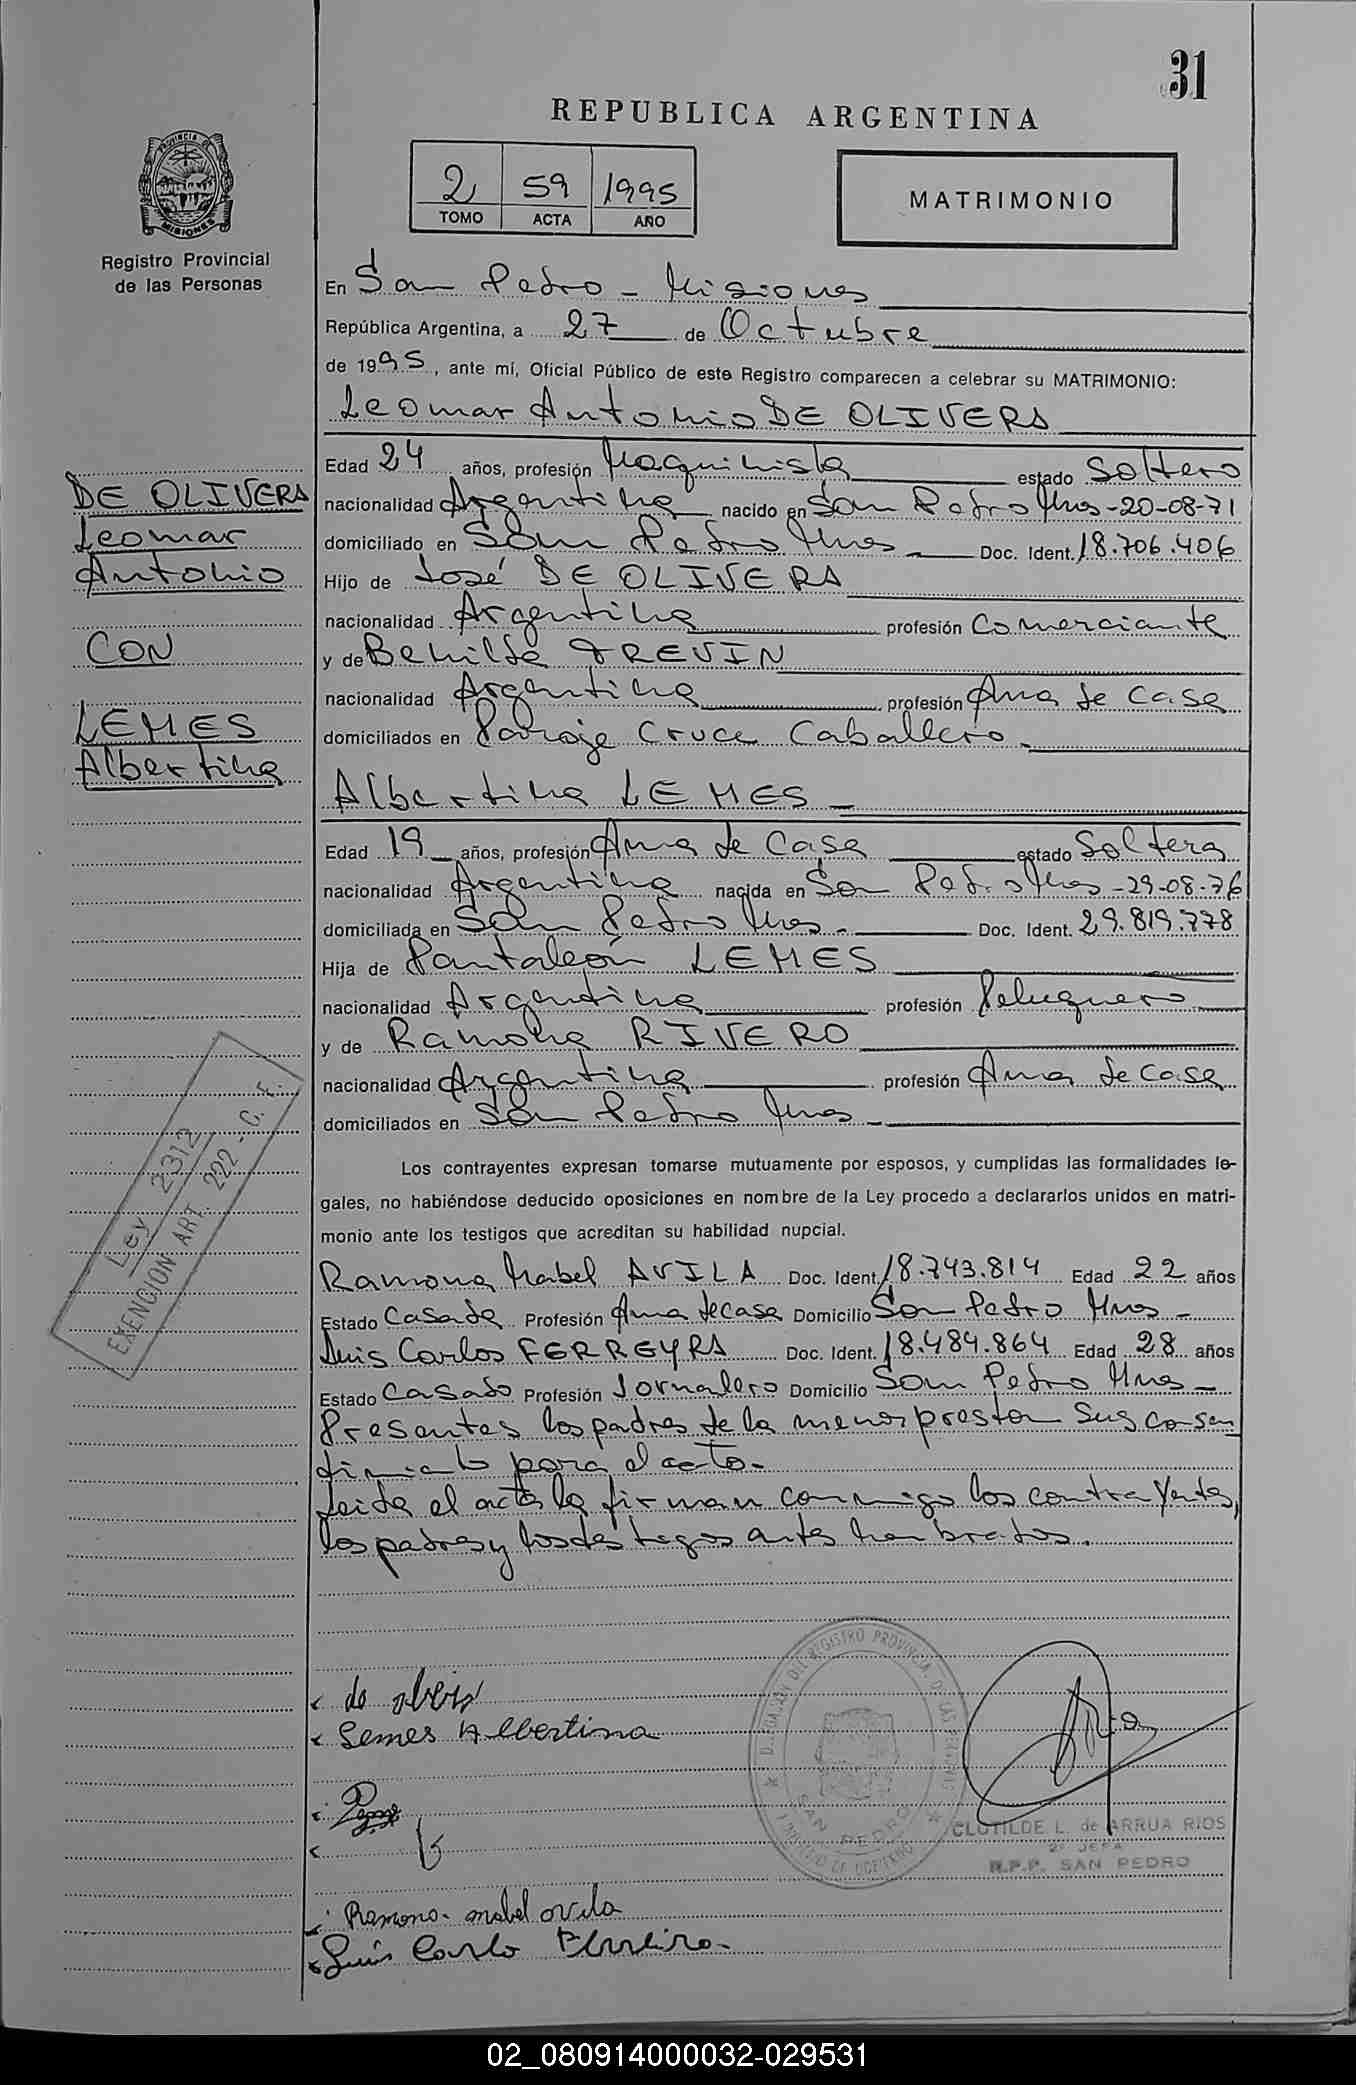 31
REPUBLICA ARGENTINA
2 59 1995
TOMO ACTA AÑO
MATRIMONIO
PROVINCIA DE MISIONES
Registro Provincial
de las Personas
En San Pedro - Misiones
República Argentina, a 27 de Octubre
de 1995, ante mí, Oficial Público de este Registro comparecen a celebrar su MATRIMONIO:
Leomar Antonio DE OLIVERA
Edad 24 años, profesión Maquinista estado Soltero
nacionalidad Argentina nacido en San Pedro Mnes - 20-08-71
domiciliado en San Pedro Mnes - Doc. Ident. 18.706.406
Hijo de José DE OLIVERA
nacionalidad Argentina profesión Comerciante
y de Benilde TREVIN
nacionalidad Argentina profesión Ama de casa
domiciliados en Paraje Cruce Caballero -
Albertina LEMES -
Edad 19 años, profesión Ama de Casa estado Soltera
nacionalidad Argentina nacida en San Pedro Mnes - 29-08-76
domiciliada en San Pedro Mnes - Doc. Ident. 29.819.778
Hija de Pantaleón LEMES
nacionalidad Argentina profesión Peluquero
y de Ramona RIVERO
nacionalidad Argentina profesión Ama de casa
domiciliados en San Pedro Mnes -
Los contrayentes expresan tomarse mutuamente por esposos, y cumplidas las formalidades le-
gales, no habiéndose deducido oposiciones en nombre de la Ley procedo a declararlos unidos en matri-
monio ante los testigos que acreditan su habilidad nupcial.
Ramona Mabel AVILA Doc. Ident. 18.743.814 Edad 22 años
Estado Casada Profesión Ama de casa Domicilio San Pedro Mnes -
Luis Carlos FERREYRA Doc. Ident. 18.484.864 Edad 28 años
Estado Casado Profesión Jornalero Domicilio San Pedro Mnes -
Presentes los padres de la menor prestan sus consen
timiento para el acto.-
Leída el acta la firman conmigo los contrayentes,
los padres y los testigos antes nombrados.
DE OLIVERA
Leomar
Antonio
CON
LEMES
Albertina
Ley 2312
EXENCION ART. 222 - C. F.
de olivera
Lemes Albertina
Ramona mabel avila
Luis Carlo Ferreira -
DELEGACION DEL REGISTRO PROVINCIAL DE LAS PERSONAS
SAN PEDRO
MINISTERIO DE GOBIERNO
CLOTILDE L. de ARRUA RIOS
2º JEFA
R.P.P. SAN PEDRO
02_080914000032-029531